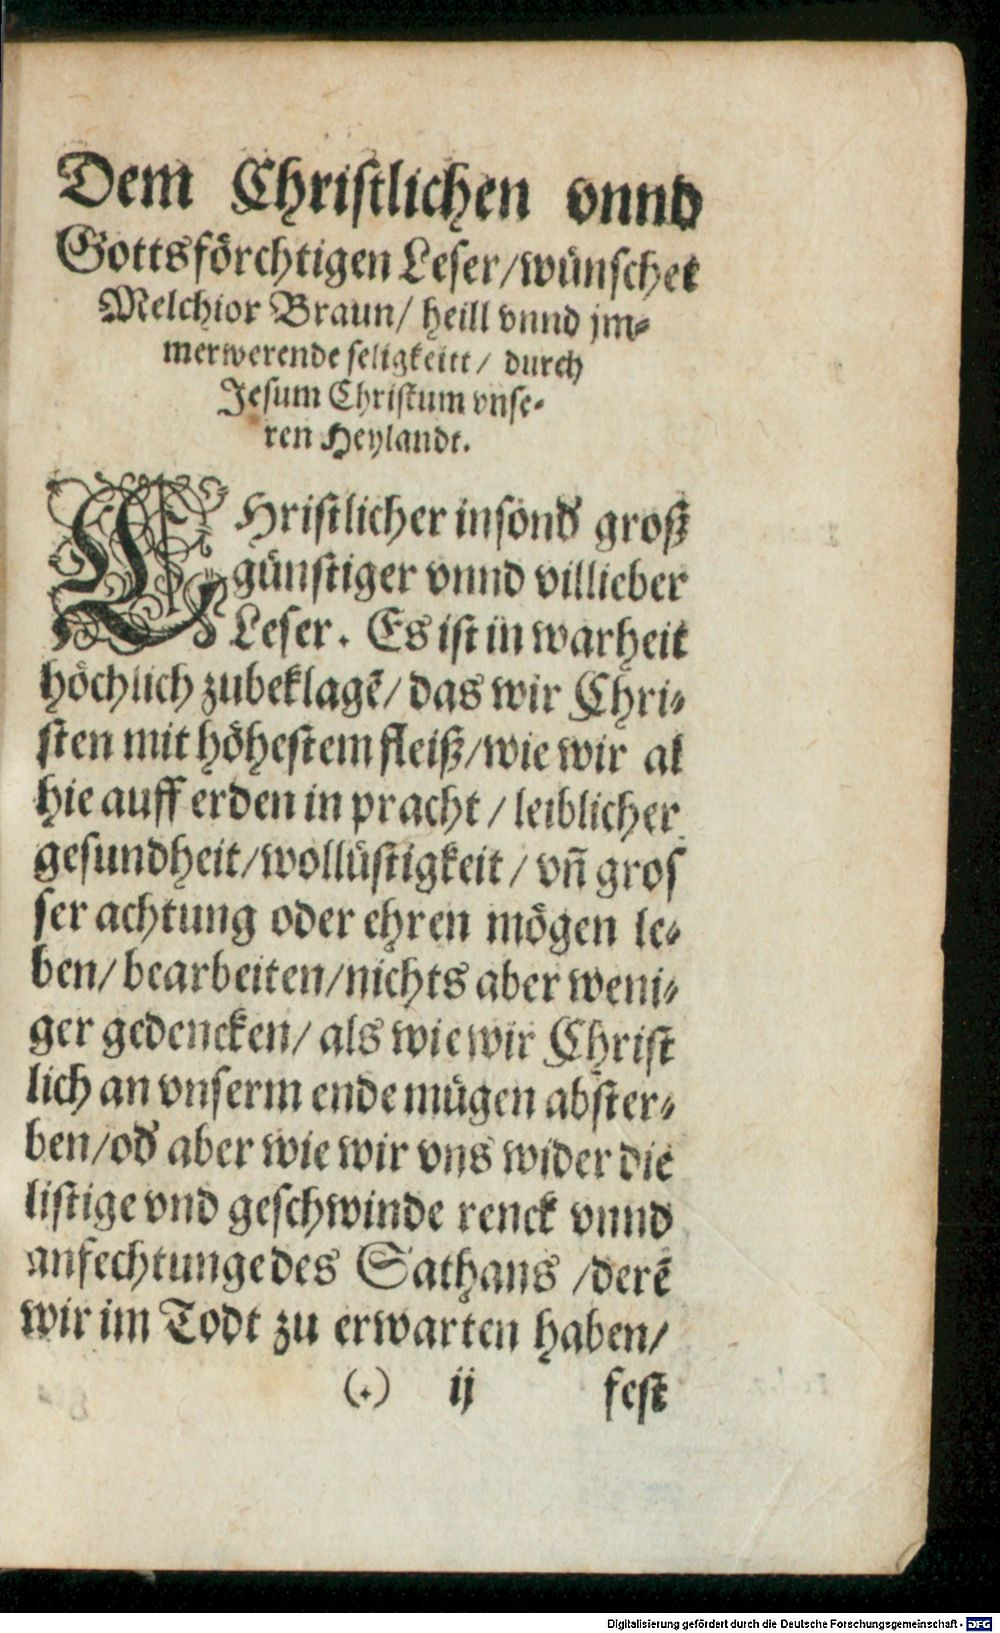 Dem Christlichen vnnd
Gottsförchtigen Leser/wünschet
Melchior Braun/ heill vnnd jm⸗
merwerende seligkeitt/ durch
Jesum Christum vnse⸗
ren Heylandt.
CHristlicher insond groß
günstiger vnnd villieber
Leser. Es ist in warheit
höchlich zubeklagē/ das wir Chri⸗
sten mit höhestem fleiß/wie wir al
hie auff erden in pracht / leiblicher
gesundheit/wollüstigkeit / vñ gros
ser achtung oder ehren mögen le⸗
ben/ bearbeiten/nichts aber weni⸗
ger gedencken/ als wie wir Christ
lich an vnserm ende mügen abster⸗
ben/od aber wie wir vns wider die
listige vnd geschwinde renck vnnd
anfechtunge des Sathans /derē
wir im Todt zu erwarten haben/
(.) ij fest
Digitalisierung gefördert durch die Deutsche Forschungsgemeinschaft - DFG